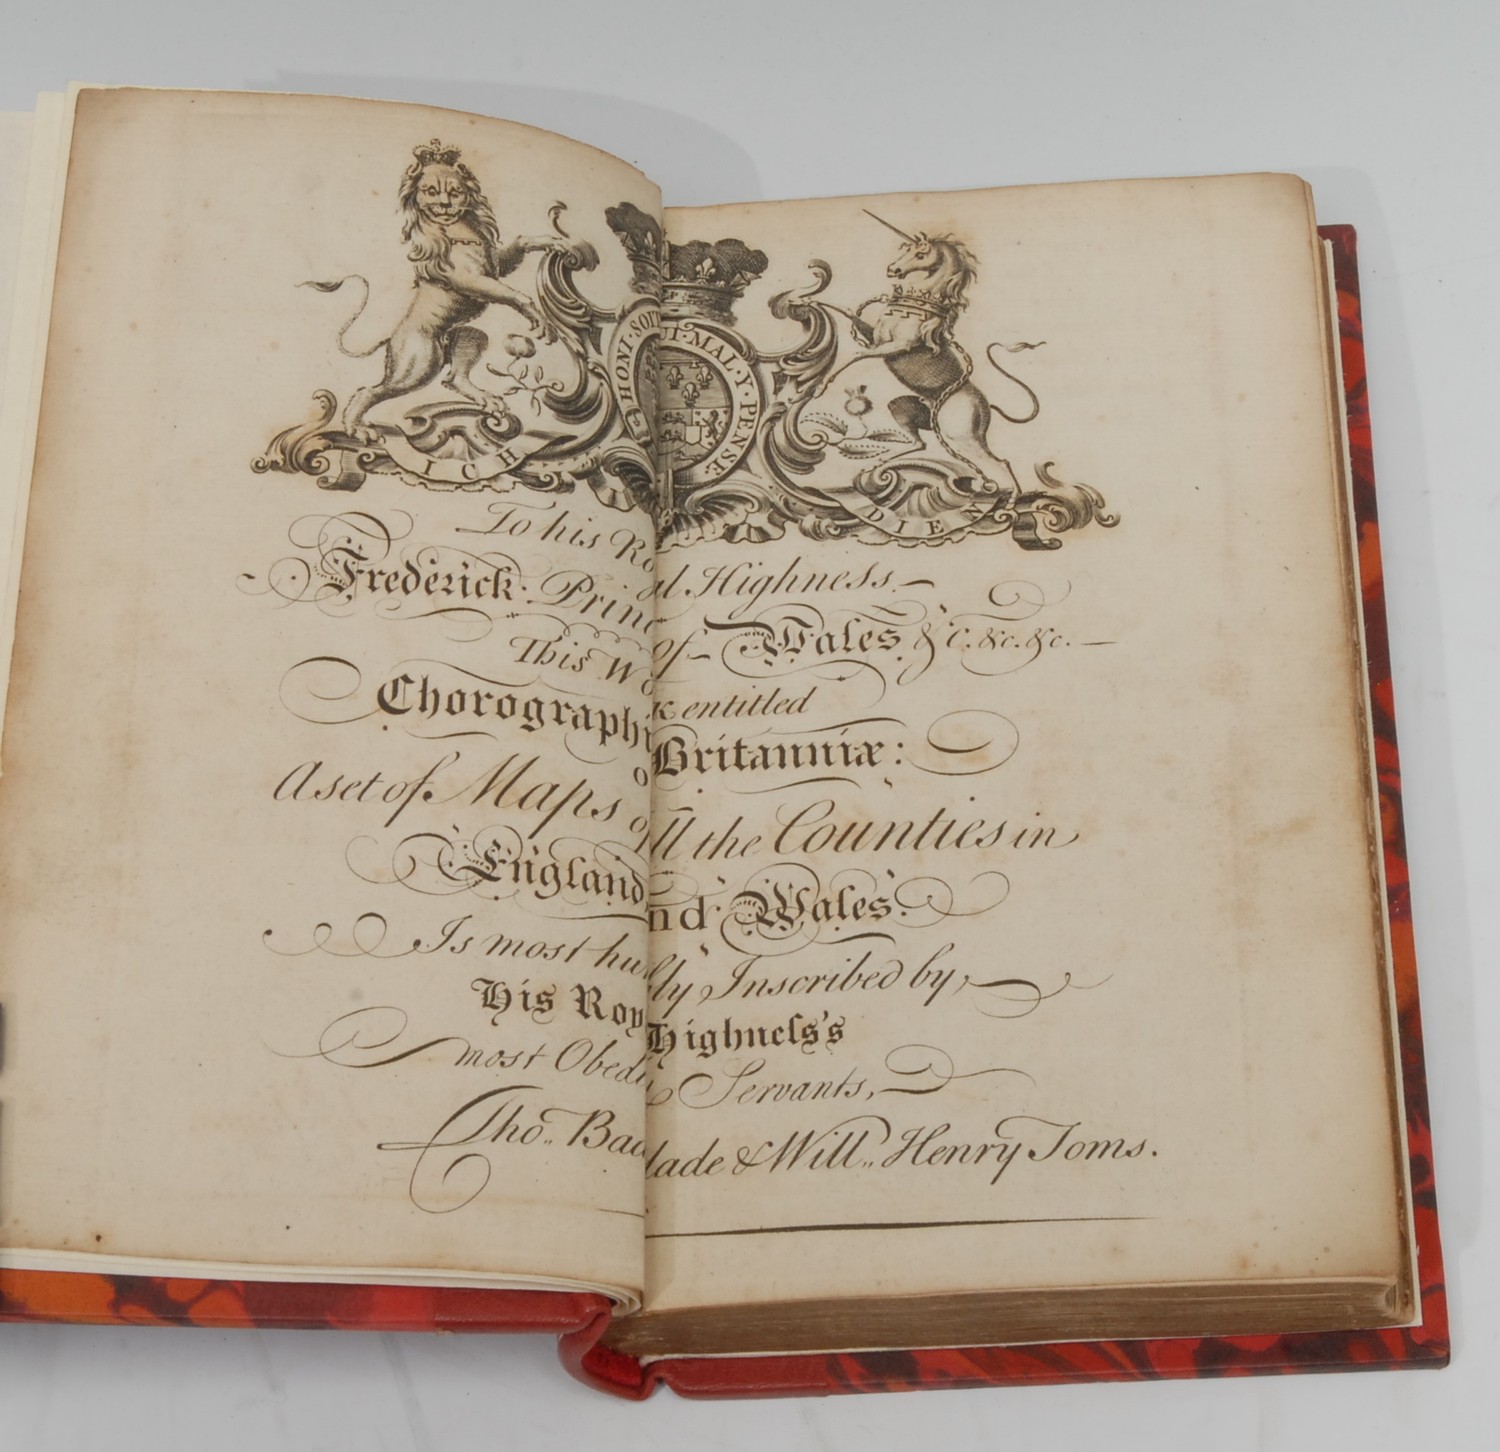 HONI·SOIT·MAL·Y·PENSE
ICH DIEN
To his Royal Highness
Frederick Prince of Wales &c. &c. &c.
This Work entitled
Chorographia Britanniæ:
or
A set of Maps of all the Counties in
England, and Wales.
Is most humbly Inscribed by
His Royal Highneſs's
most Obedient Servants,
Tho. Badeslade & Will. Henry Toms.